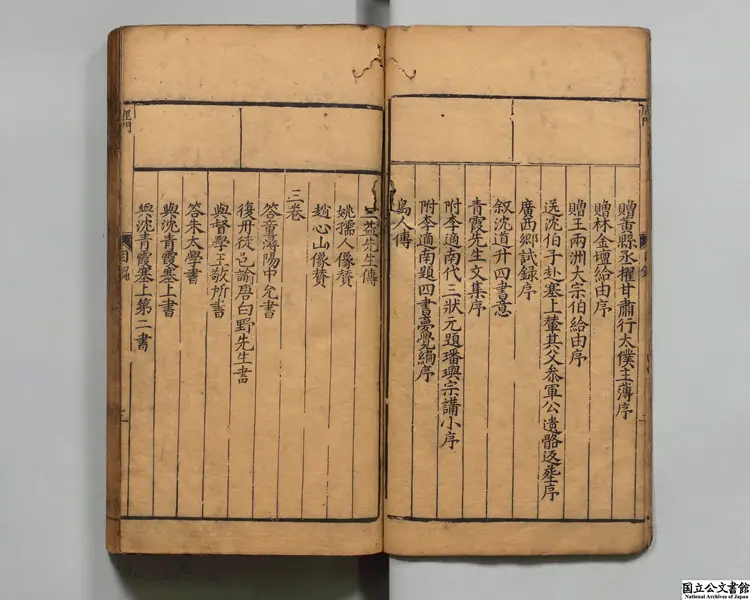 贈黃縣丞擢甘肅行太僕主薄序
贈林金壇給由序
贈王兩洲大宗伯給由序
送沈伯子赴塞上輦其父叅軍公遺骼返葬序
廣西鄉試録序
叙沈道升四書意
青霞先生文集序
附李適南代三狀元題璠璵宗譜小序
附李適南題四書夢覺編序
島人傳
先生傳
姚孺人像賛
趙心山像賛
三卷
答童潯陽中允書
復丹徒邑諭唐白野先生書
與督學王敬所書
答朱太學書
與沈青霞塞上書
與沈青霞塞上第二書
目錄
二
国立公文書館
National Archives of Japan